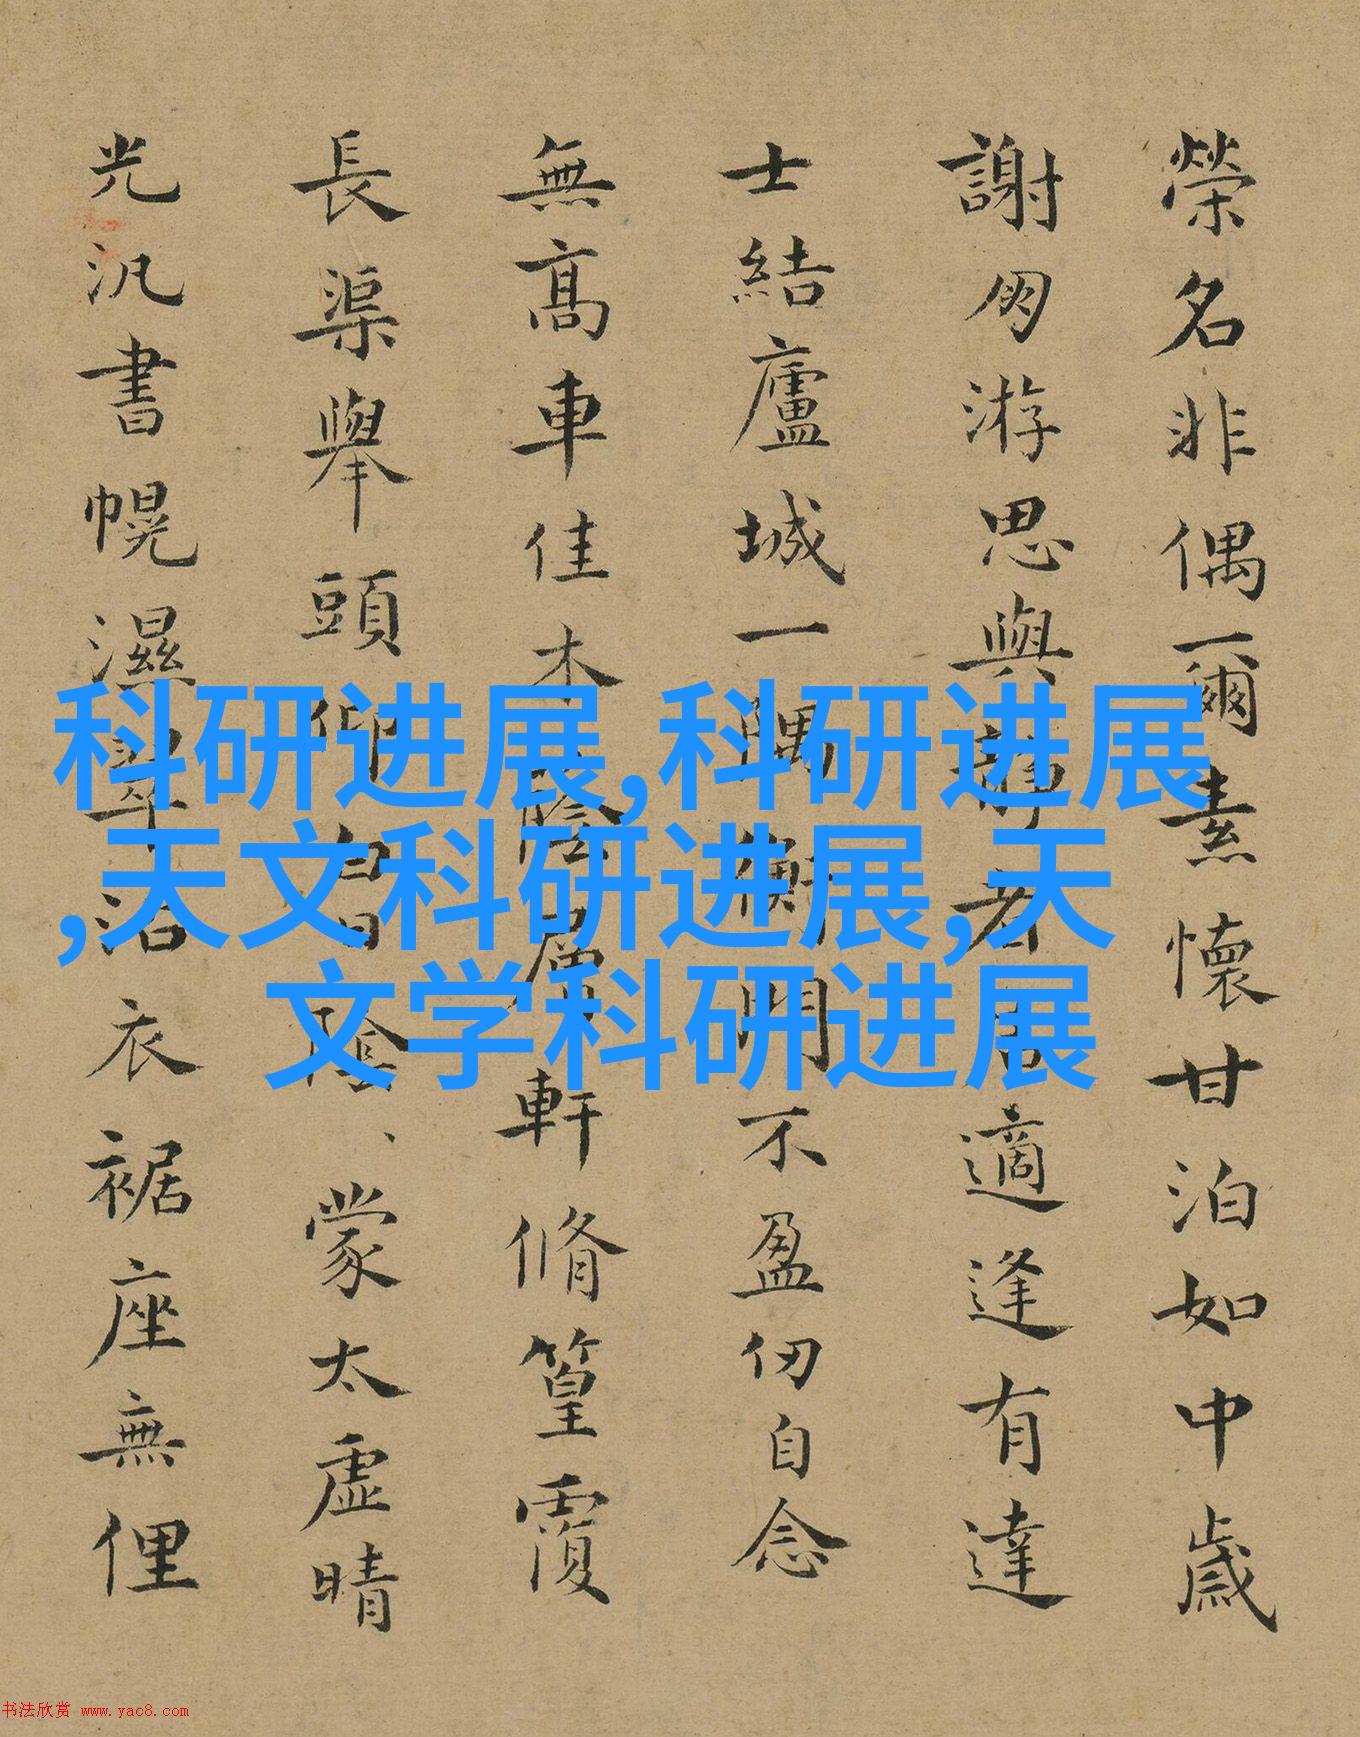 榮名非偶爾素懷甘泊如中歲
謝朋游思與靜者居適逢有達
士結廬城一隅衡門不盈仞自念
無髙車佳木陰層軒脩篁覆
長渠舉頭仰白日陰、蒙太虛晴
光汎書幌濕翠沾衣裾座無俚
科研进展,科研进展
,天文科研进展,天
文学科研进展
书法欣赏 www.yac8.com